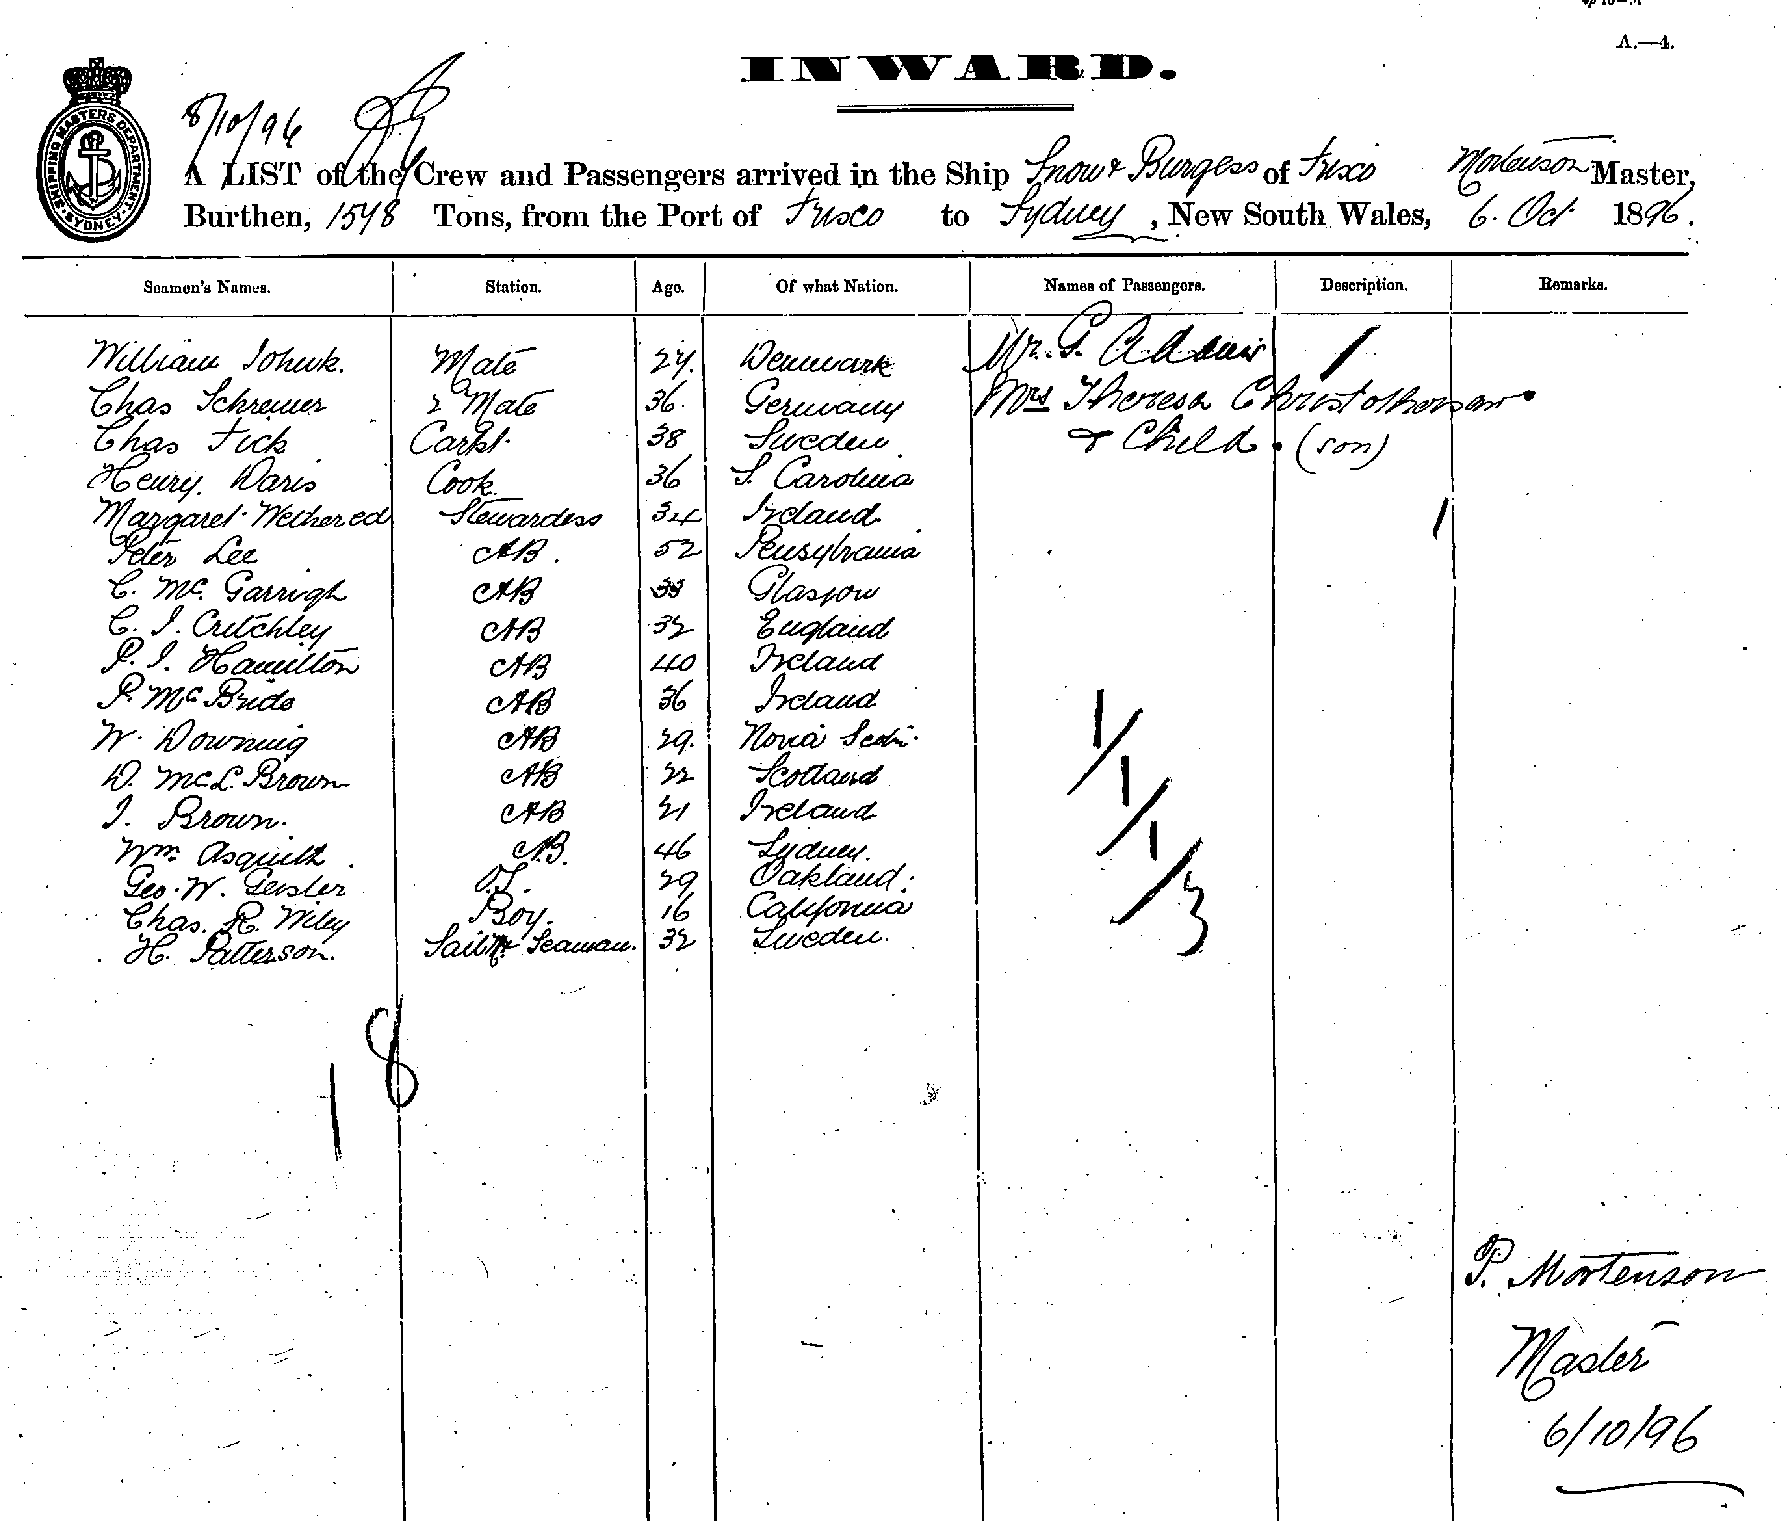 A.—4.
INWARD.
SHIPPING MASTERS DEPARTMENT SYDNEY
8/10/96
A LIST of the Crew and Passengers arrived in the Ship Snow & Burgess of Frisco Mortenson Master,
Burthen, 1548 Tons, from the Port of Frisco to Sydney, New South Wales, 6. Oct. 1896.
Seamen's Names. Station. Age. Of what Nation. Names of Passengers. Description. Remarks.
William Mate 27. Denmark Mr. G. Adair 1
Chas Schreiner 2 Mate 36. Germany Mrs Theresa Christothersen
Chas Fick Carpt. 38 Sweden & Child. (son)
Henry. Davis Cook. 36 S. Carolina
Margaret Wethered Stewardess 34 Ireland 1
Peter Lee AB. 52 Pensylvania
C. Mc. Garrigh AB 33 Glasgow
C. J. Critchley AB 32 England
P. J. Hamilton AB 40 Ireland
P. McBride AB 36 Ireland
W. Downing AB 29. Nova Scoti.
D. McL. Brown AB 22 Scotland
J. Brown. AB 21 Ireland
Wm. Asquith. A.B. 46 Sydney.
Geo. W. Geisler O.S. 29 Oakland.
Chas. R. Wiley Boy. 16 California
H. Patterson. Sailmr Seaman. 32 Sweden.
1/1/1/3
18
P. Mortenson
Master
6/10/96